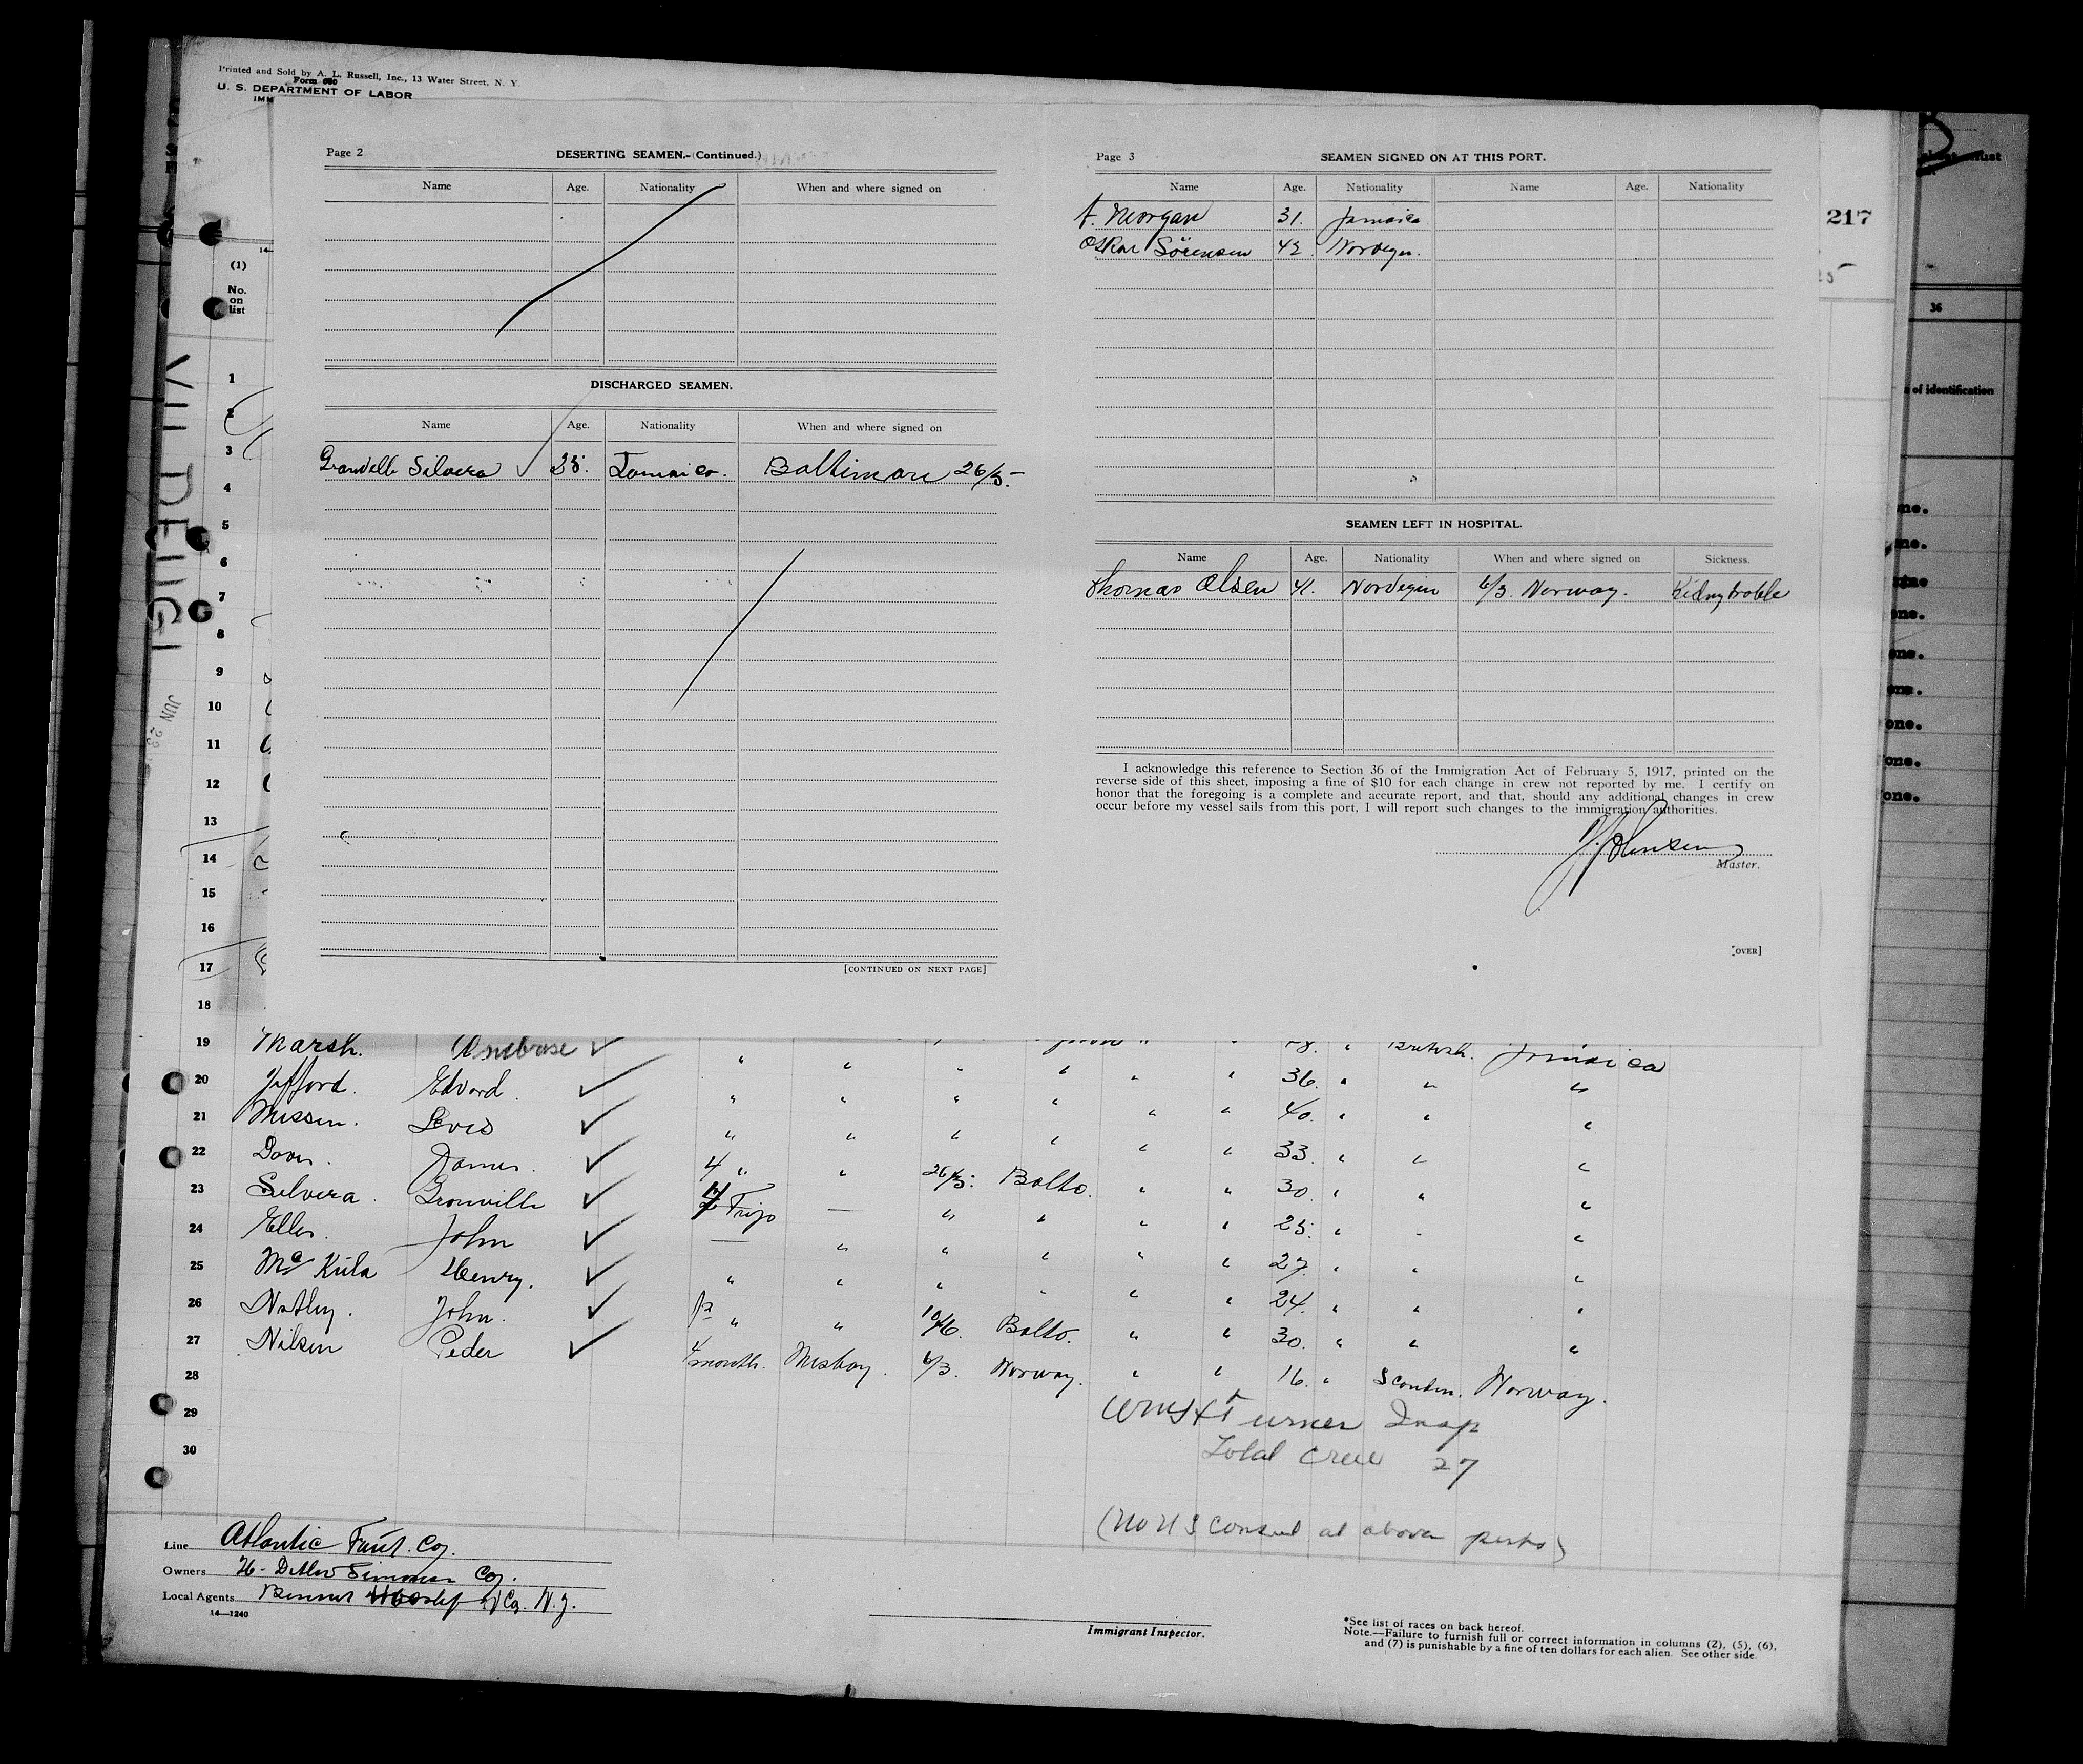 Printed and Sold by A. L. Russell, Inc., 13 Water Street, N. Y.
Form 680
U. S. DEPARTMENT OF LABOR
IMM
217
36
of identification
(1)
No.
on
list
Page 2
DESERTING SEAMEN.-(Continued.)
Name Age. Nationality When and where signed on
DISCHARGED SEAMEN.
Name Age. Nationality When and where signed on
Silvera 25. Jamaica. Baltimore 26/5.-
[CONTINUED ON NEXT PAGE]
Page 3
SEAMEN SIGNED ON AT THIS PORT.
Name Age. Nationality Name Age. Nationality
Morgan 31. Jamaica
Oskar Sörensen 42 Norvegn.
SEAMEN LEFT IN HOSPITAL.
Name Age. Nationality When and where signed on Sickness.
Thomas Olsen 41. Norvegin 6/3. Norway. Kidny troble
I acknowledge this reference to Section 36 of the Immigration Act of February 5, 1917, printed on the
reverse side of this sheet, imposing a fine of $10 for each change in crew not reported by me. I certify on
honor that the foregoing is a complete and accurate report, and that, should any additional changes in crew
occur before my vessel sails from this port, I will report such changes to the immigration authorities.
Johnsen
Master.
[OVER]
VILDEUGI
JUN 23
1
2
3
4
5
6
7
8
9
10
11
12
13
14
15
16
17
18
19 Marsh. Ambrose British. Jamaica
20 Edvard. " " " " " " 36. " " "
21 Missin. Levis " " " " " " 40. " " "
22 James. " " " " " " 33. " " "
23 Silvera. Granville 4 " " 26/5. Balto. " " 30. " " "
24 John Trips — " " " " 25. " "
25 Henry. — " " " " " 27. " " "
26 John. " " " " " 24. " " "
27 Nilsen Peder " " 10/6. Balto. " " 30. " " "
28 4 month. Messboy. 6/3. Norway. " " 16. " Scandin. Norway.
29 Turner Insp
30 Total Crew 27
(No U S Consul at above ports)
Line Atlantic Fruit. Coy.
Owners Coy.
Local Agents & Co. N. Y.
14—1240
Immigrant Inspector.
*See list of races on back hereof.
Note.—Failure to furnish full or correct information in columns (2), (5), (6),
and (7) is punishable by a fine of ten dollars for each alien. See other side.